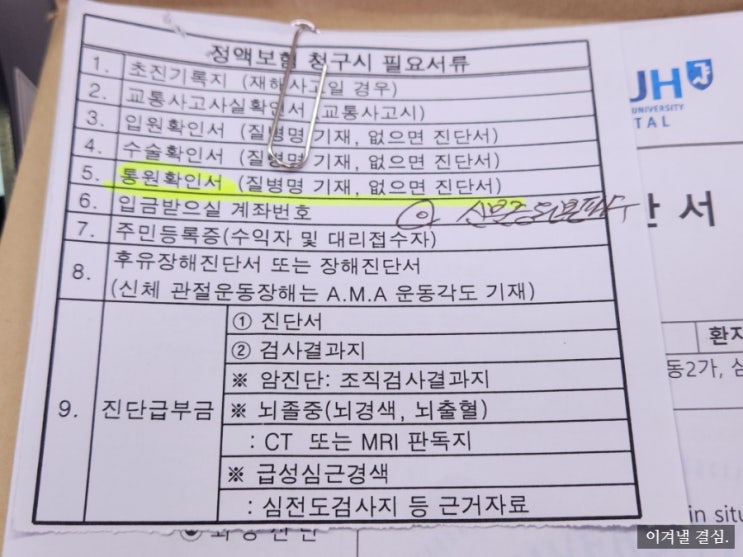 정액보험 청구시 필요서류
1. 초진기록지 (재해사고일 경우)
2. 교통사고사실확인서 (교통사고시)
3. 입원확인서 (질병명 기재, 없으면 진단서)
4. 수술확인서 (질병명 기재, 없으면 진단서)
5. 통원확인서 (질병명 기재, 없으면 진단서)
6. 입금받으실 계좌번호
7. 주민등록증(수익자 및 대리접수자)
8. 후유장해진단서 또는 장해진단서
(신체 관절운동장해는 A.M.A 운동각도 기재)
9. 진단급부금
① 진단서
② 검사결과지
※ 암진단: 조직검사결과지
※ 뇌졸중(뇌경색, 뇌출혈)
: CT 또는 MRI 판독지
※ 급성심근경색
: 심전도검사지 등 근거자료
UH
UNIVERSITY
TAL
단 서
환자
동2가,
in situ
이겨낼 결심.